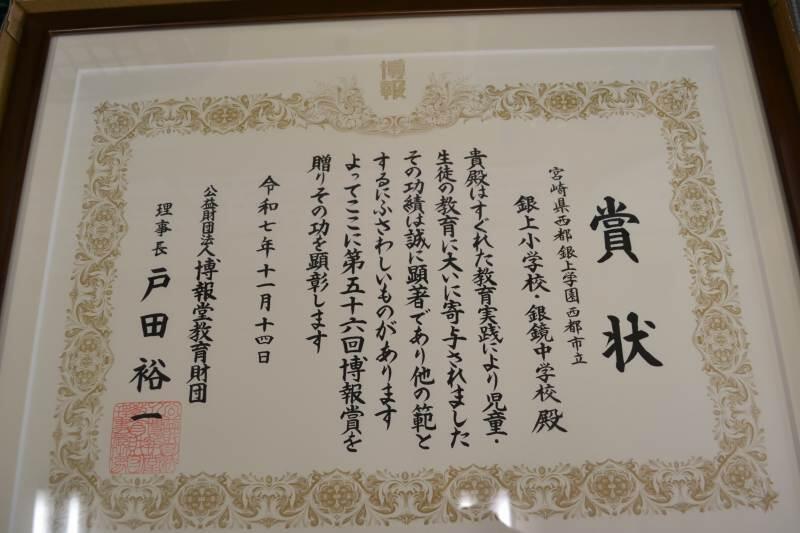 博報
賞状
宮崎県西都銀上学園西都市立
銀上小学校・銀鏡中学校 殿
貴殿はすぐれた教育実践により児童・
生徒の教育に大いに寄与されました
その功績は誠に顕著であり他の範と
するにふさわしいものがあります
よってここに第五十六回博報賞を
贈りその功を顕彰します
令和七年十一月十四日
公益財団法人 博報堂教育財団
理事長 戸田裕一